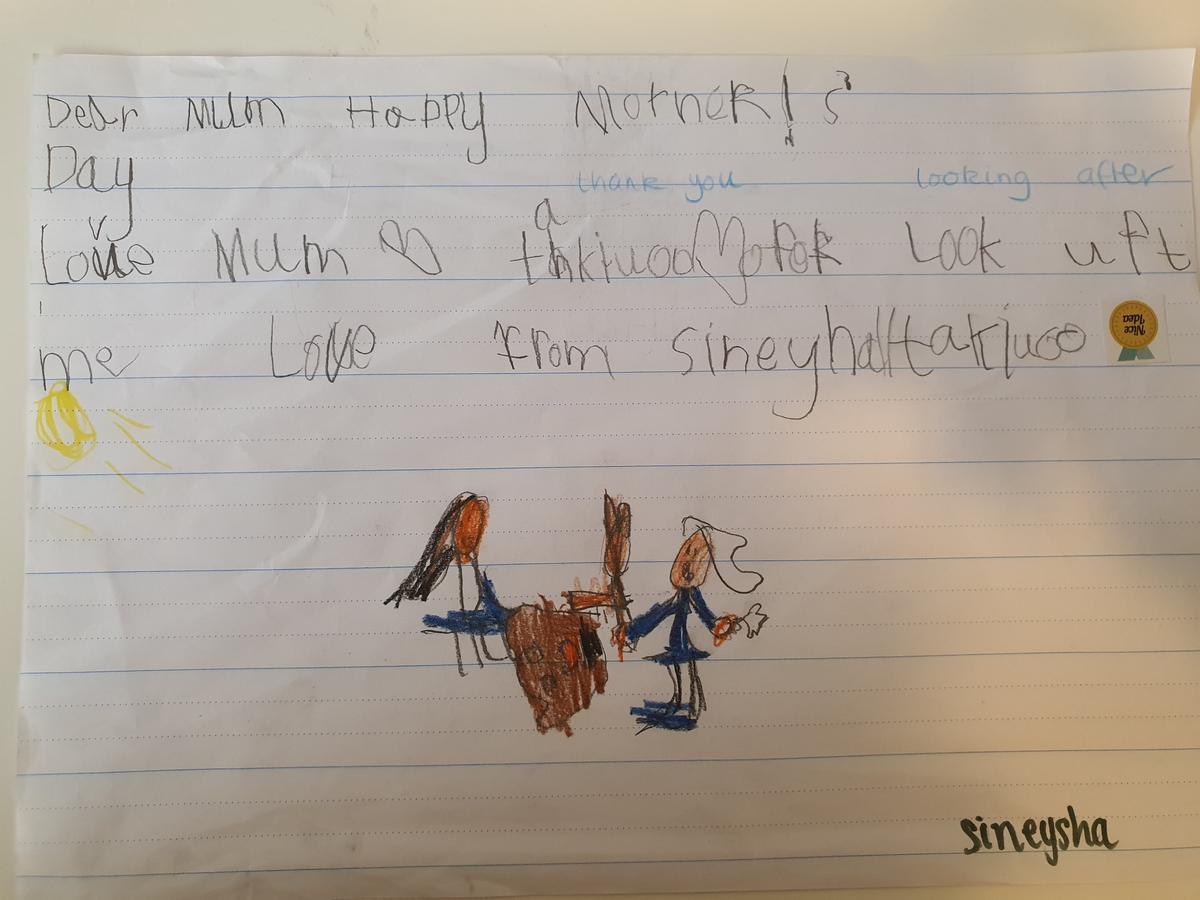 Dear Mum Happy Mother!s'
Day
thank you looking after
v a
Love Mum thkiuoo for Look uft
me Love from sineyhalttakiuoo
Nice
Idea
sineysha